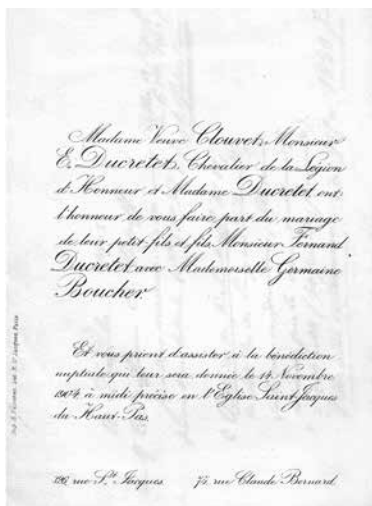 Madame Veuve Clouvet, Monsieur
E. Ducretet, Chevalier de la Légion
d'Honneur et Madame Ducretet ont
l'honneur de vous faire part du mariage
de leur petit-fils et fils Monsieur Fernand
Ducretet avec Mademoiselle Germaine
Boucher.
Et vous prient d'assister à la bénédiction
nuptiale qui leur sera donnée le 14 Novembre
1904 à midi précise en l'Eglise Saint-Jacques
du Haut-Pas.
rue St. Jacques
75, rue Claude Bernard.